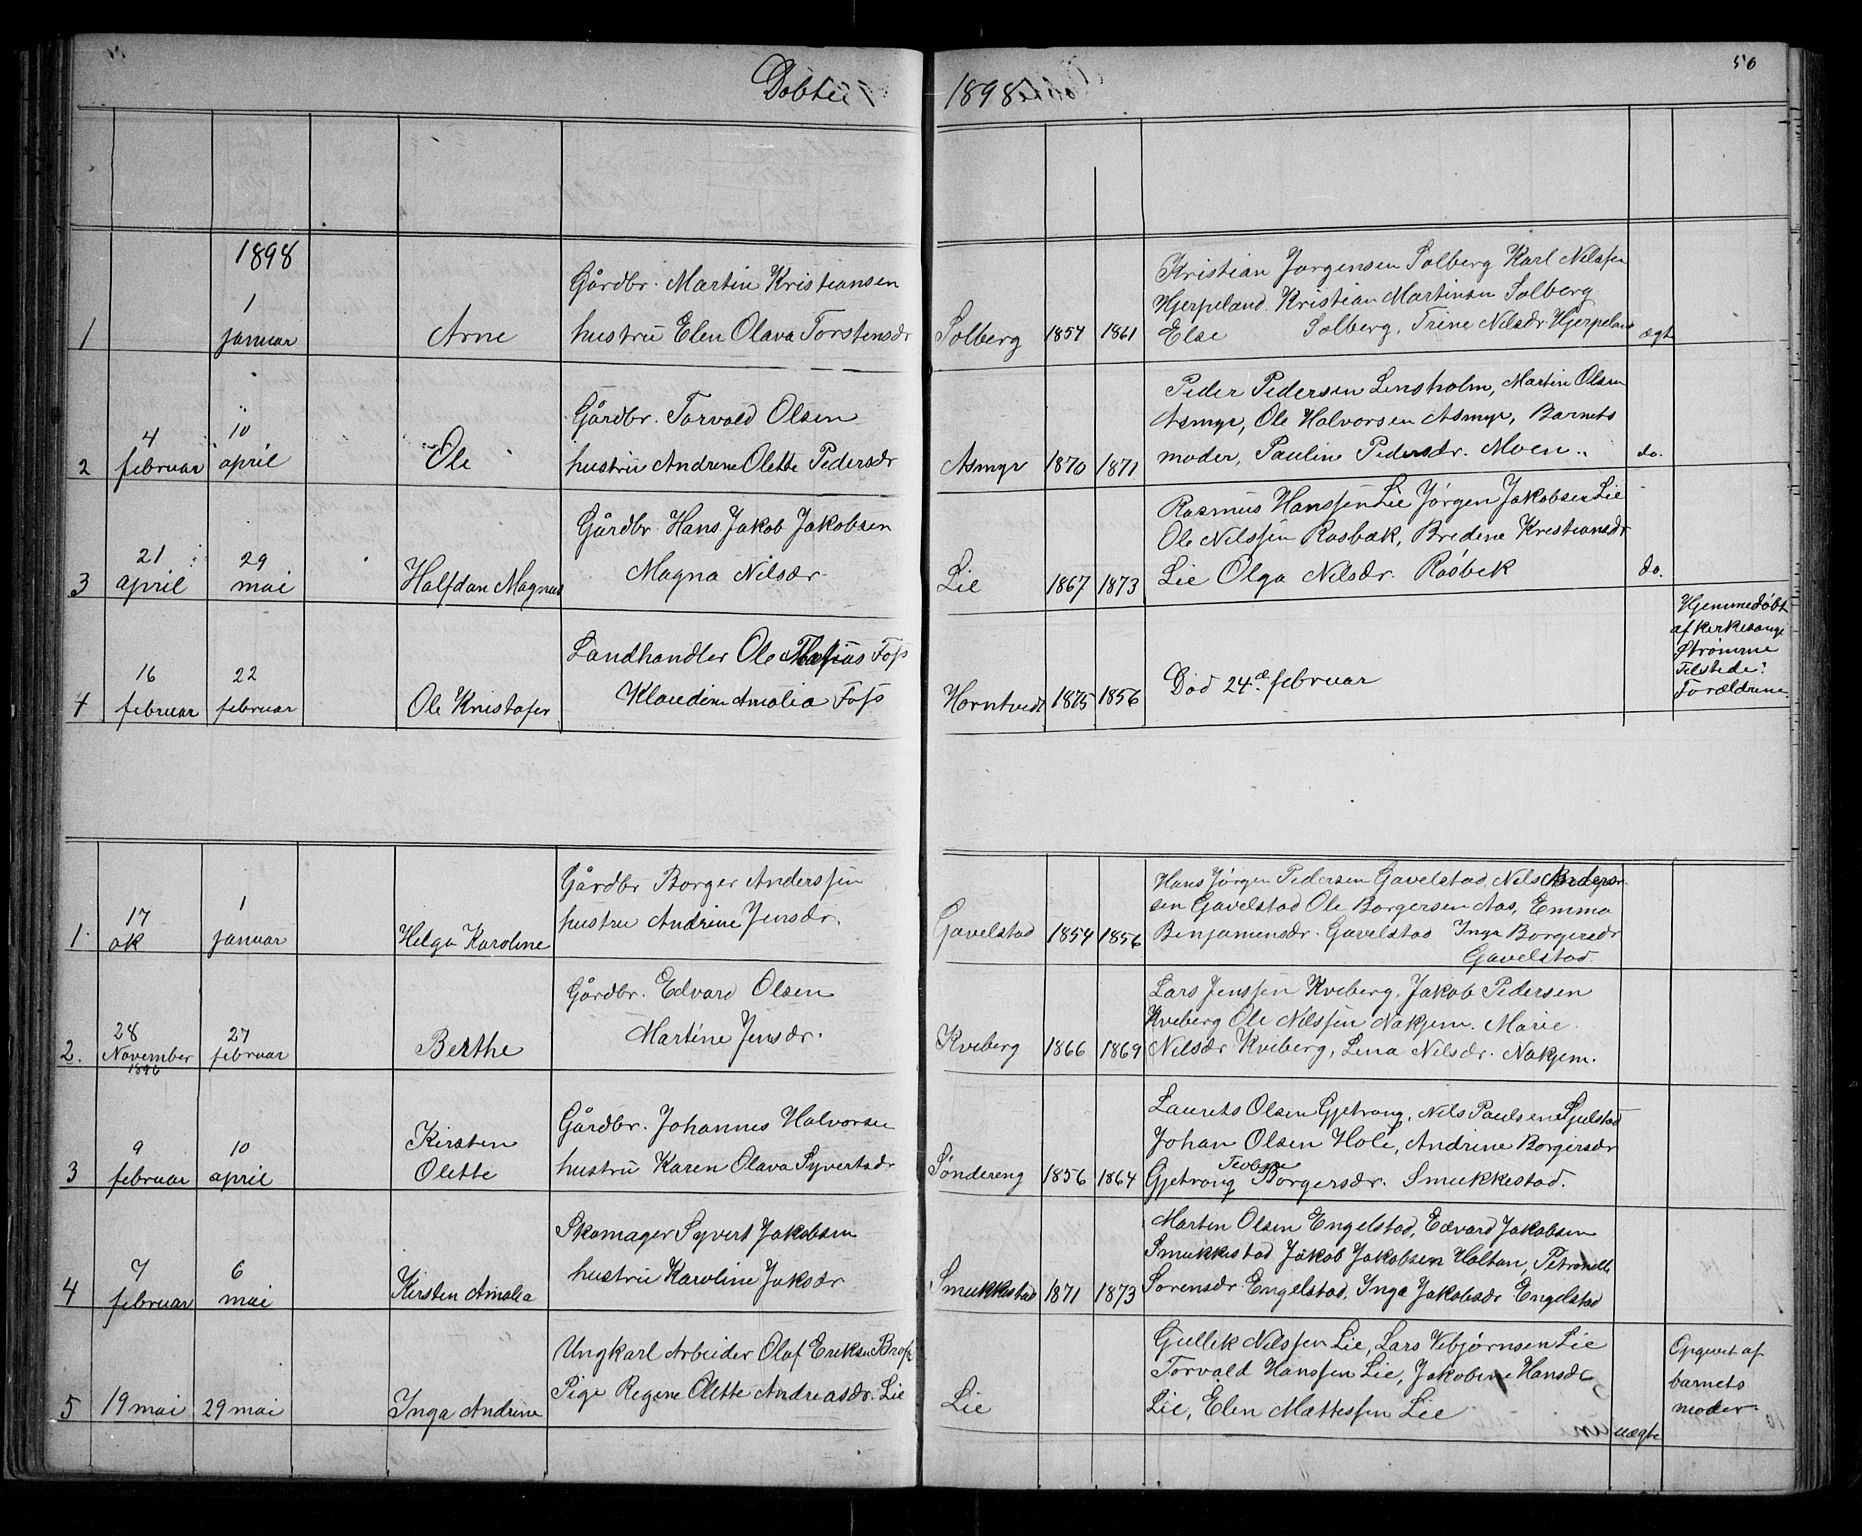 Döbte 1898
50
1898
1
1
januar
Arne
Gårdbr. Martin Kristiansen
hustru Elen Olava Torstensdr
Solberg 1857 1861
Kristian Jorgensen Solberg Karl Nilssen
Hjerpeland Kristian Martinsen Solberg
Else Solberg, Trine Nilsdr Hjerpeland
ægt
2
4
februar
10
april
Ole
Gårdbr. Torvald Olsen
hustru Andrene Olette Pedersdr
Asmyr 1870 1871
Peder Pedersen Lensholm, Martin Olsen
Asmyr, Ole Halvorsen Asmyr, Barnets
moder, Pauline Pedersdr. Moen.
do.
3
21
april
29
mai
Halfdan Magnus
Gårdbr. Hans Jakob Jakobsen
Magna Nilsdr.
Lie 1867 1873
Rasmus Hanssen Lie Jørgen Jakobsen Lie
Ole Nilssen Rasbæk, Bredine Kristiansdr
Lie Olga Nilsdr. Råsbek
do.
4
16
februar
22
februar
Ole Kristofer
Landhandler Ole Foss
Klaudine Amalia Foss
Horntvedt 1875 1856
Död 24de februar
Hjemmedøbt
af kirkesange
Strömme
Tilstede:
Forældrene
1.
17
ok
1
januar
Helga Karoline
Gårdbr Borger Anderssen
hustru Andrine Jensdr.
Gavelstad 1854 1856
Hans Jörgen Pedersen Gavelstad, Nils Anders-
sen Gavelstad Ole Borgersen Aas, Emma
Benjamensdr. Gavelstad Inga Borgersdr
Gavelstad
2.
28
November
1896
27
februar
Berthe
Gårdbr. Edvard Olsen
Martine Jensdr.
Kveberg 1866 1869
Lars Jenssen Kveberg, Jakob Pedersen
Kveberg Ole Nilssen Nakjem. Marie
Nilsdr Kveberg, Lina Nilsdr. Nakjem.
3
9
februar
10
april
Kirsten
Olette
Gårdbr. Johannes Halvorsen
hustru Karen Olava Syvertsdr
Söndereng 1856 1864
Laurits Olsen Gjetrang, Nils Paulsen Gjulstad
Johan Olsen Hole, Andrine Borgersdr
Gjetrang Borgersdr. Smukkestad.
4
7
februar
6
mai
Kirsten Amalia
Skomager Syvert Jakobsen
hustru Karoline Jaksdr
Smukkestad 1871 1873
Martin Olsen Engelstad, Edvard Jakobsen
Smukkestad Jakob Jakobsen Holtan, Petronelle
Sorensdr. Engelstad, Inga Jakobsdr Engelstad
5
19 mai
29 mai
Inga Andrine
Ungkarl Arbeider Olaf Eriksen
Pige Regine Olette Andreasdr. Lie
Lie
Gullek Nilssen Lie, Lars Vebjørnsen Lie
Torvald Hanssen Lie, Jakobine Hansdr
Lie, Elen Mattessen Lie
uægte
Opgivet af
barnets
moder